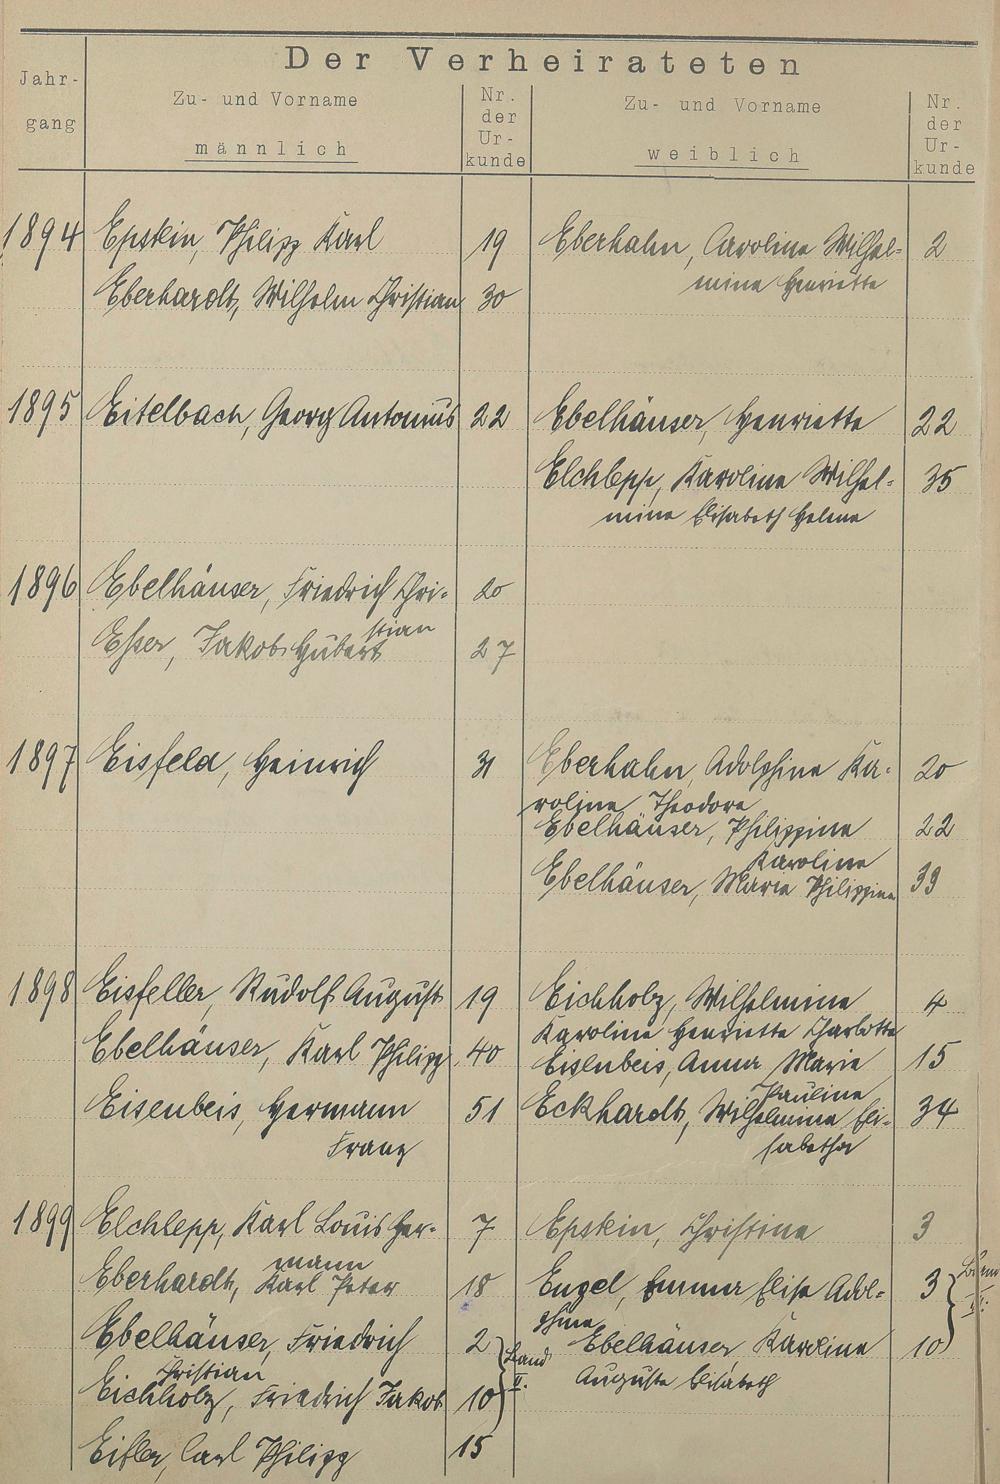 Der Verheirateten
Jahr-
gang
Zu- und Vorname
männlich
Nr.
der
Ur-
kunde
Zu- und Vorname
weiblich
Nr.
der
Ur-
kunde
1894 Epskin, Philipp Karl 19 Eberhahn, Caroline Wilhel- 2
mine Henriette
Eberhardt, Wilhelm Christian 30
1895 Eitelbach, Georg Antonius 22 Ebelhäuser, Henriette 22
Elchlepp, Karoline Wilhel- 35
mine Elisabeth Helene
1896 Ebelhäuser, Friedrich Chri- 20
stian
Esser, Jakob Hubert 27
1897 Eisfeld, Heinrich 31 Eberhahn, Adolphine Ka- 20
roline Theodore
Ebelhäuser, Philippine 22
Karoline
Ebelhäuser, Marie Philippine 39
1898 Eisfeller, Rudolf August 19 Eichholz, Wilhelmine 4
Karoline Henriette Charlotte
Ebelhäuser, Karl Philipp 40 Eisenbeis, Anna Marie 15
Pauline
Eisenbeis, Hermann 51 Eckhardt, Wilhelmine Eli- 34
Franz sabetha
1899 Elchlepp, Karl Louis Her- 7 Epskin, Christine 3
mann
Eberhardt, Karl Peter 18 Engel, Emma Elise Adol- 3
phine
Ebelhäuser, Friedrich 2 Ebelhäuser Karoline 10
Christian Band Auguste Elisabeth
Eichholz, Friedrich Jakob 10 II.
Eifler, Carl Philipp 15